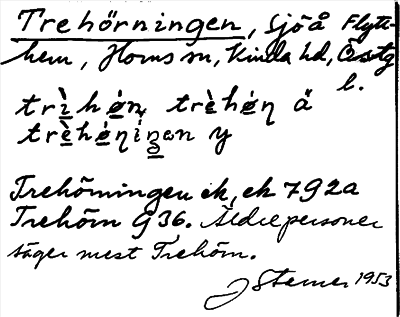 Trehörningen, sjö å Flytt-
hem, Horns sn, Kinda hd, Östg
l.
trìhø̀n, trèhø̀n ä
trèhø̀niŋən y
Trehörningen ek, ek 792a
Trehörn G 36. Äldre personer
säger mest Trehörn.
J Sterner 1953